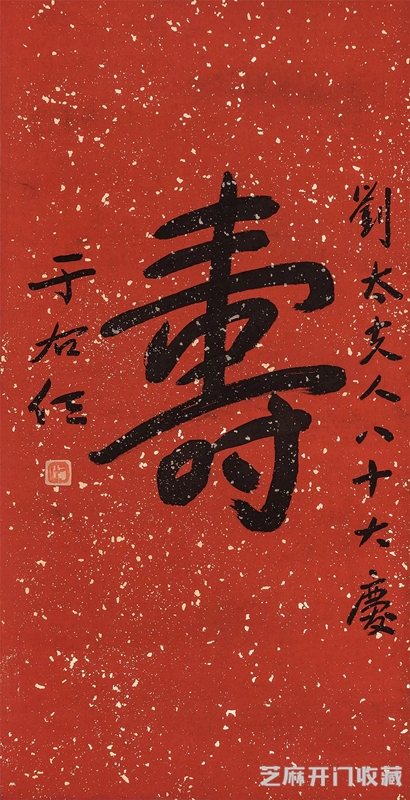 劉太夫人八十大慶
壽
于右任
芝麻开门收藏